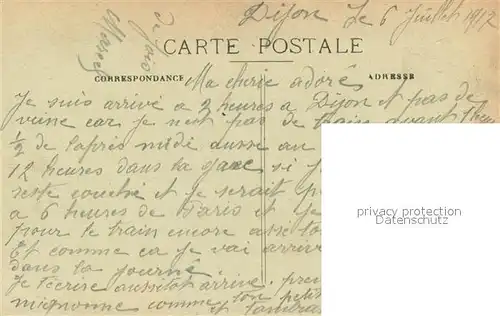 Dijon Le 6 Juillet 1917
CARTE POSTALE
CORRESPONDANCE
ADRESSE
Ma cherie adoré
Je suis arrivé a 2 heures a Dijon et pas de
veine car je neut pas de train avant
½ de laprès midi aussi
12 heures dans la gare si
reste couché et je serait
a 6 heures de Paris et je
pour le train encore
Et comme ca je vai arrivé
dans la journé
Je técrire aussitot arrivé
mignonne comme ton petit
et tendres
privacy protection
Datenschutz